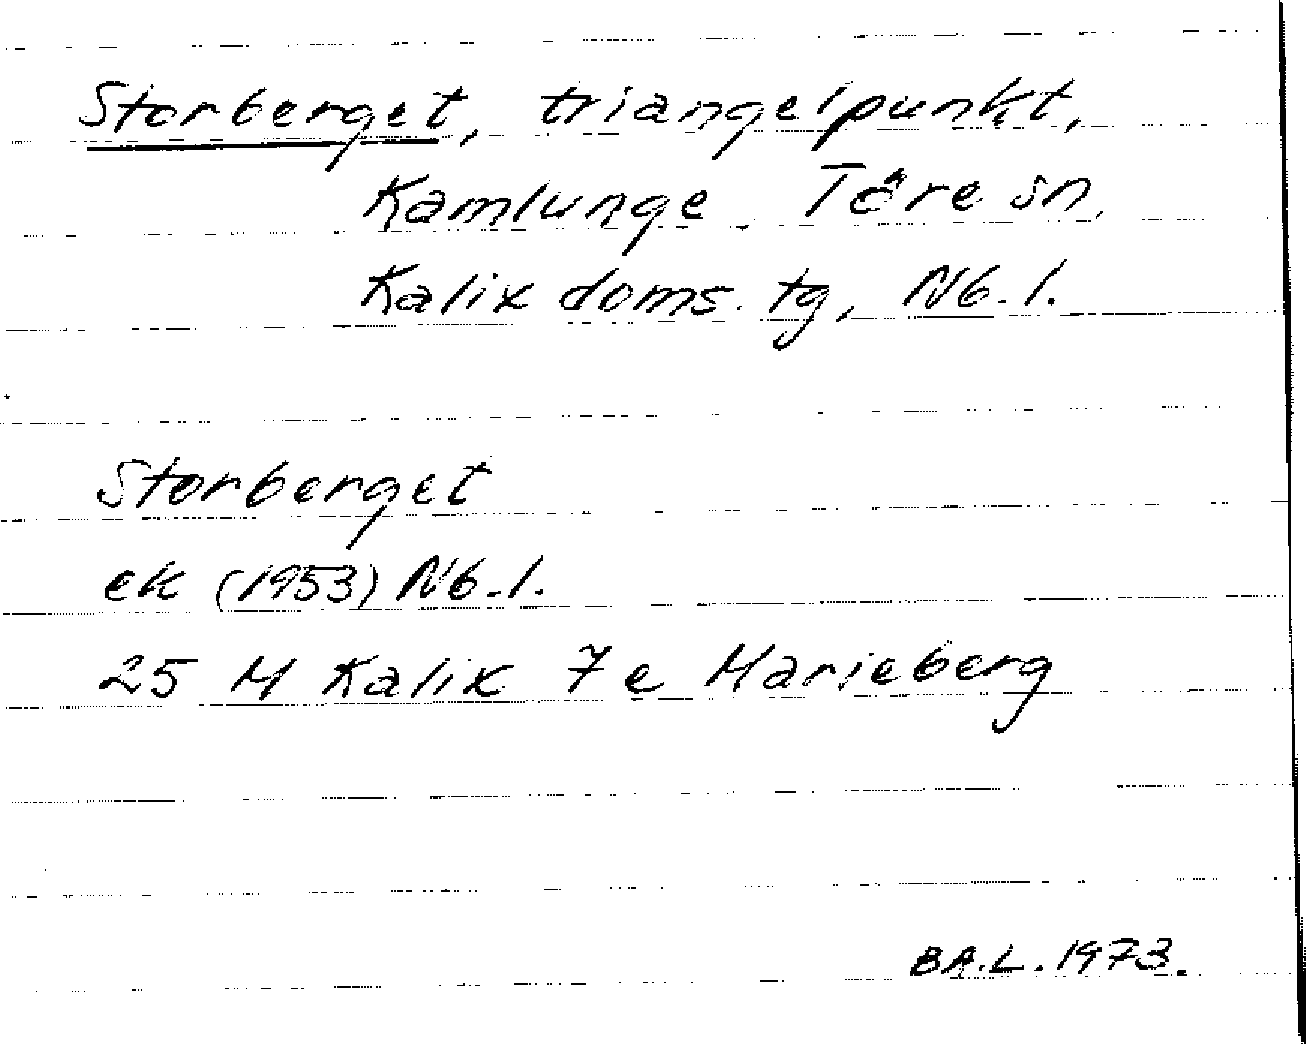 Storberget, triangelpunkt,
Kamlunge Töre sn,
Kalix doms. tg, Nb. l.
Storberget
ek (1953) Nb. l.
25 M Kalix 7e Marieberg
BA.L. 1973.